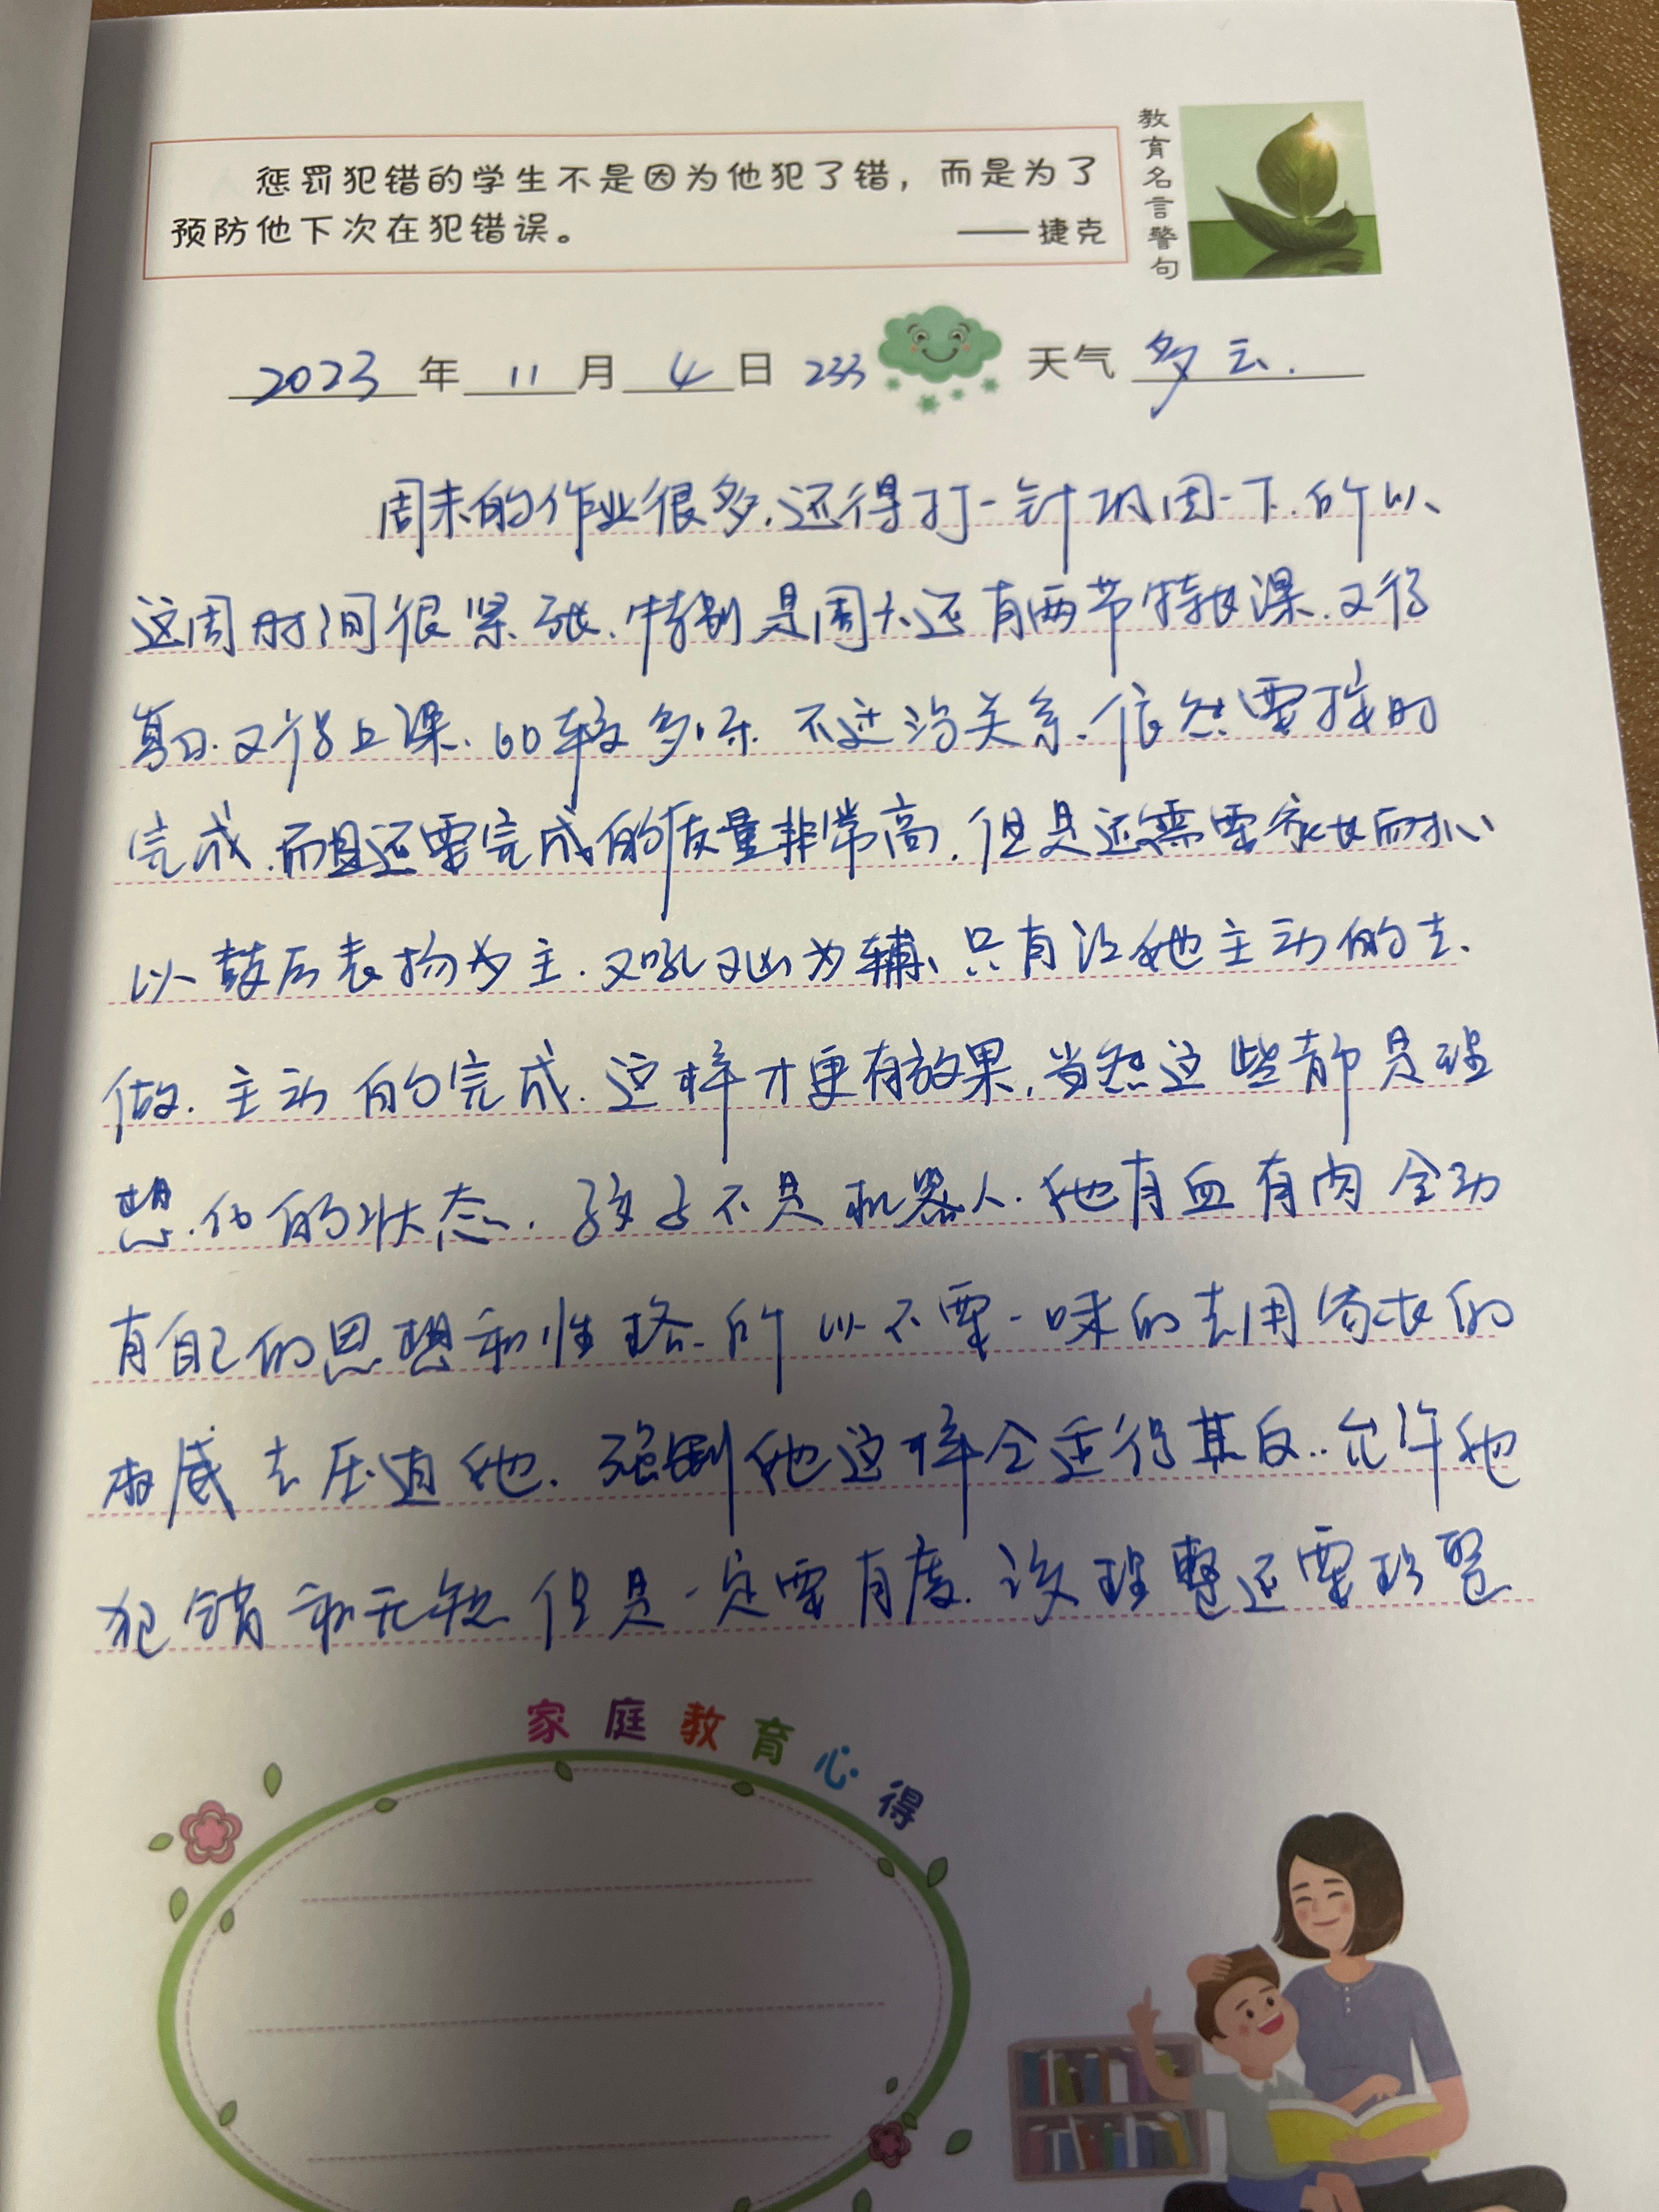 惩罚犯错的学生不是因为他犯了错，而是为了
预防他下次在犯错误。
——捷克
教育名言警句
2023年11月4日 233 天气 多云.
周末的作业很多.还得打一针巩固一下.所以
这周时间很紧张.特别是周六还有两节特长课.又得
复习.又得上课、比较多
不过没关系.依然要按时
完成.而且还要完成的质量非常高.但是还需要家长耐心
以鼓励表扬为主.又吼又凶为辅、只有让她主动的去、
做.主动的完成.这样才更有效果.当然这些都是理
想化的状态.孩子不是机器人.她有血有肉
有自己的思想和性格.所以不要一味的去用家长的
权威去压迫她.强制她这样会适得其反..允许她
犯错和无知 但是一定要有度.该理整还要理整
家庭教育心得